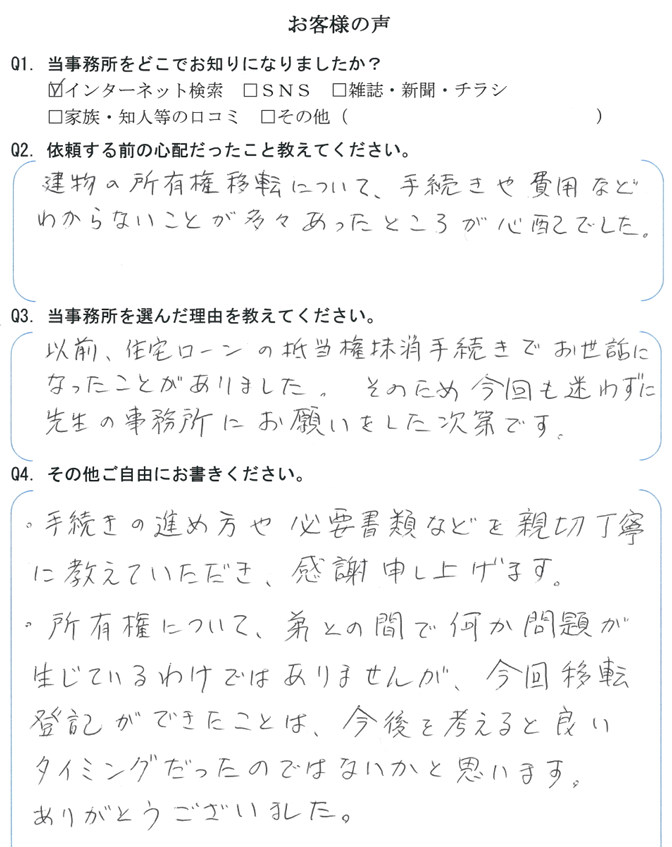 お客様の声
Q1. 当事務所をどこでお知りになりましたか？
☑インターネット検索 □SNS □雑誌・新聞・チラシ
□家族・知人等の口コミ □その他（ ）
Q2. 依頼する前の心配だったこと教えてください。
建物の所有権移転について、手続きや費用など
わからないことが多々あったところが心配でした。
Q3. 当事務所を選んだ理由を教えてください。
以前、住宅ローンの抵当権抹消手続きでお世話に
なったことがありました。そのため今回も迷わずに
先生の事務所にお願いをした次第です。
Q4. その他ご自由にお書きください。
。手続きの進め方や必要書類などを親切丁寧
に教えていただき、感謝申し上げます。
・所有権について、弟との間で何か問題が
生じているわけではありませんが、今回移転
登記ができたことは、今後を考えると良い
タイミングだったのではないかと思います。
ありがとうございました。